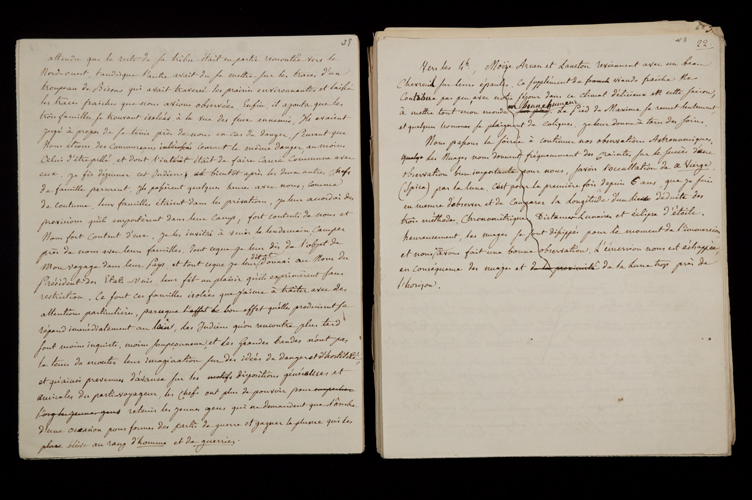 28
attendu que le reste de sa tribu était en partie remontée vers le
Nord-ouest, tandis que l'autre avait du se mettre sur les traces d'un
troupeau de Bisons qui avait traversé les prairies environnantes et laissé
les traces fraiches que nous avions observées. Enfin, il ajouta que les
trois familles se trouvant isolées à la vue des feux ennemis, Ils avaient
jugé à propos de se tenir près de nous en cas de danger,
Nous étions des communs ennemis courant le même danger, au moins
celui d'être pillé et dont l'intérêt était de faire Cause Commune avec
eux. Je fis déjeuner cet Indien, et bientôt après les deux autres Chefs
de famille parurent. Ils passèrent quelques heures avec nous, comme
de coutume, leurs familles étaient dans les privations, je leur accordai des
provisions qu'ils emportèrent dans leurs Camps, fort contents de nous et
Nous fort Contents d'eux. Je les invitai à venir le lendemain Camper
près de nous avec leurs familles. Tout ce que je leur dis de l'objet de
Mon voyage dans leur Pays et tout ce que je leur donnai au Nom du
Président des Etats-Unis, leur fit un plaisir qu'ils exprimèrent sans
restriction. Ce sont ces familles isolées que j'aime à traiter avec des
attentions particulières, parceque le bon effet qu'elles produisent se
répand immédiatement au loin, les Indiens qu'on rencontre plus tard
sont moins inquiets, moins soupçonneux, et les Grandes bandes n'ont pas
le tems de monter leur imagination sur des idées de danger et d'hostilité,
et qu'ainsi prévenues d'avance sur les dispositions généreuses, et
amicales du parti voyageur, les Chefs ont plus de pouvoir pour
retenir les jeunes gens qui ne demandent que l'ombre
d'une occasion pour former des partis de guerre et gagner la plume qui les
place élève au rang d'homme et de guerrier.
22
Vers les 4h, Moïse Arcan et Lauston revinrent avec un beau
Chevreuil sur leurs épaules. Ce supplément de viande fraiche
Contribue peu à peu avec notre séjour dans ce climat délicieux et cette saison,
à mettre tout mon monde en bonne humeur. Le Pied de Maxime se remet lentement,
et quelques hommes se plaignent de coliques. Je leur donne à tous des soins.
Nous passons la soirée à continuer nos observations Astronomiques,
les Nuages nous donnent fréquemment des craintes sur le succès d'une
observation bien importante pour nous, savoir l'occultation de α Vierge
(Spica) par la lune. C'est pour la première fois depuis 6 ans, que je suis
en mesure d'observer et de Comparer la longitude d'un lieu déduite des
trois méthodes, Chronométrique, Distances Lunaires et éclipse d'étoile.
heureusement, les nuages se sont dissipés pour le moment de l'immersion
et nous avons fait une bonne observation. L'émersion nous est échappée,
en conséquence des nuages et de la proximité de la lune trop près de
l'horizon.